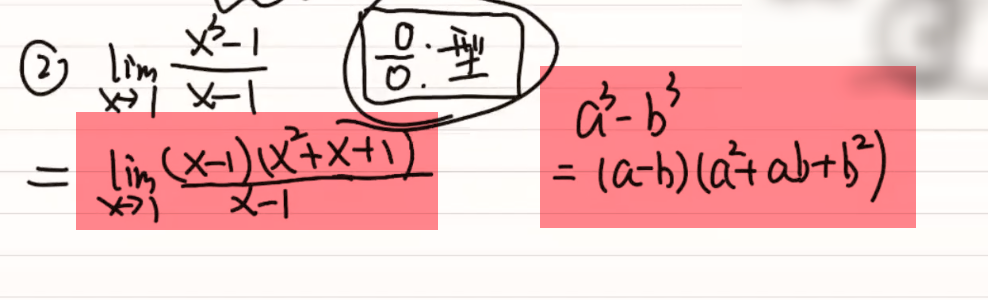 ② lim x→1 (x³-1)/(x-1)
0/0 型
= lim x→1 (x-1)(x²+x+1)/(x-1)
a³-b³
= (a-b)(a²+ab+b²)